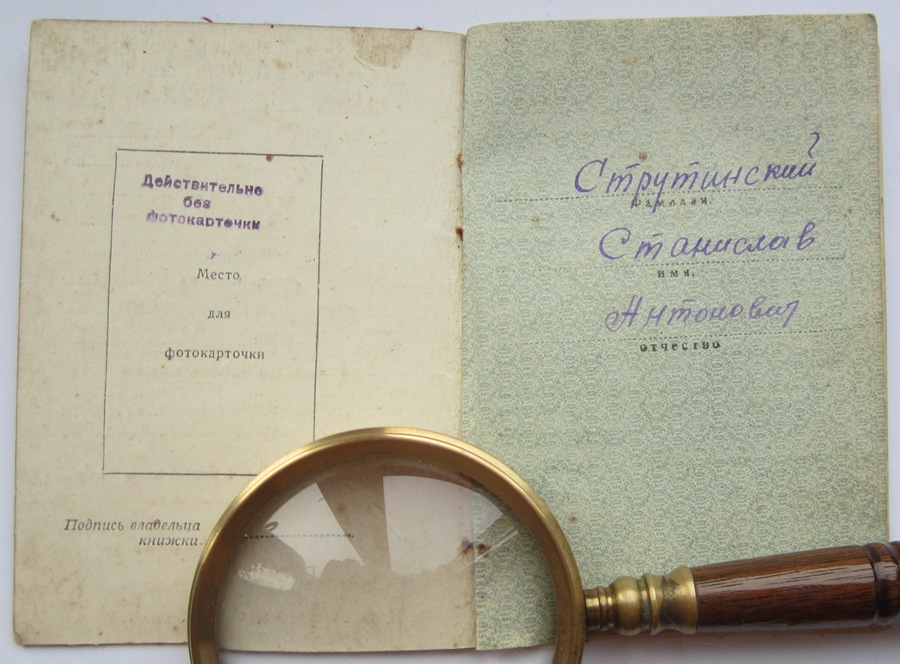 Действительно
без
фотокарточки
Место
для
фотокарточки
Подпись владельца
книжки
Струтинский
фамилия
Станислав
имя
Антонович
отчество